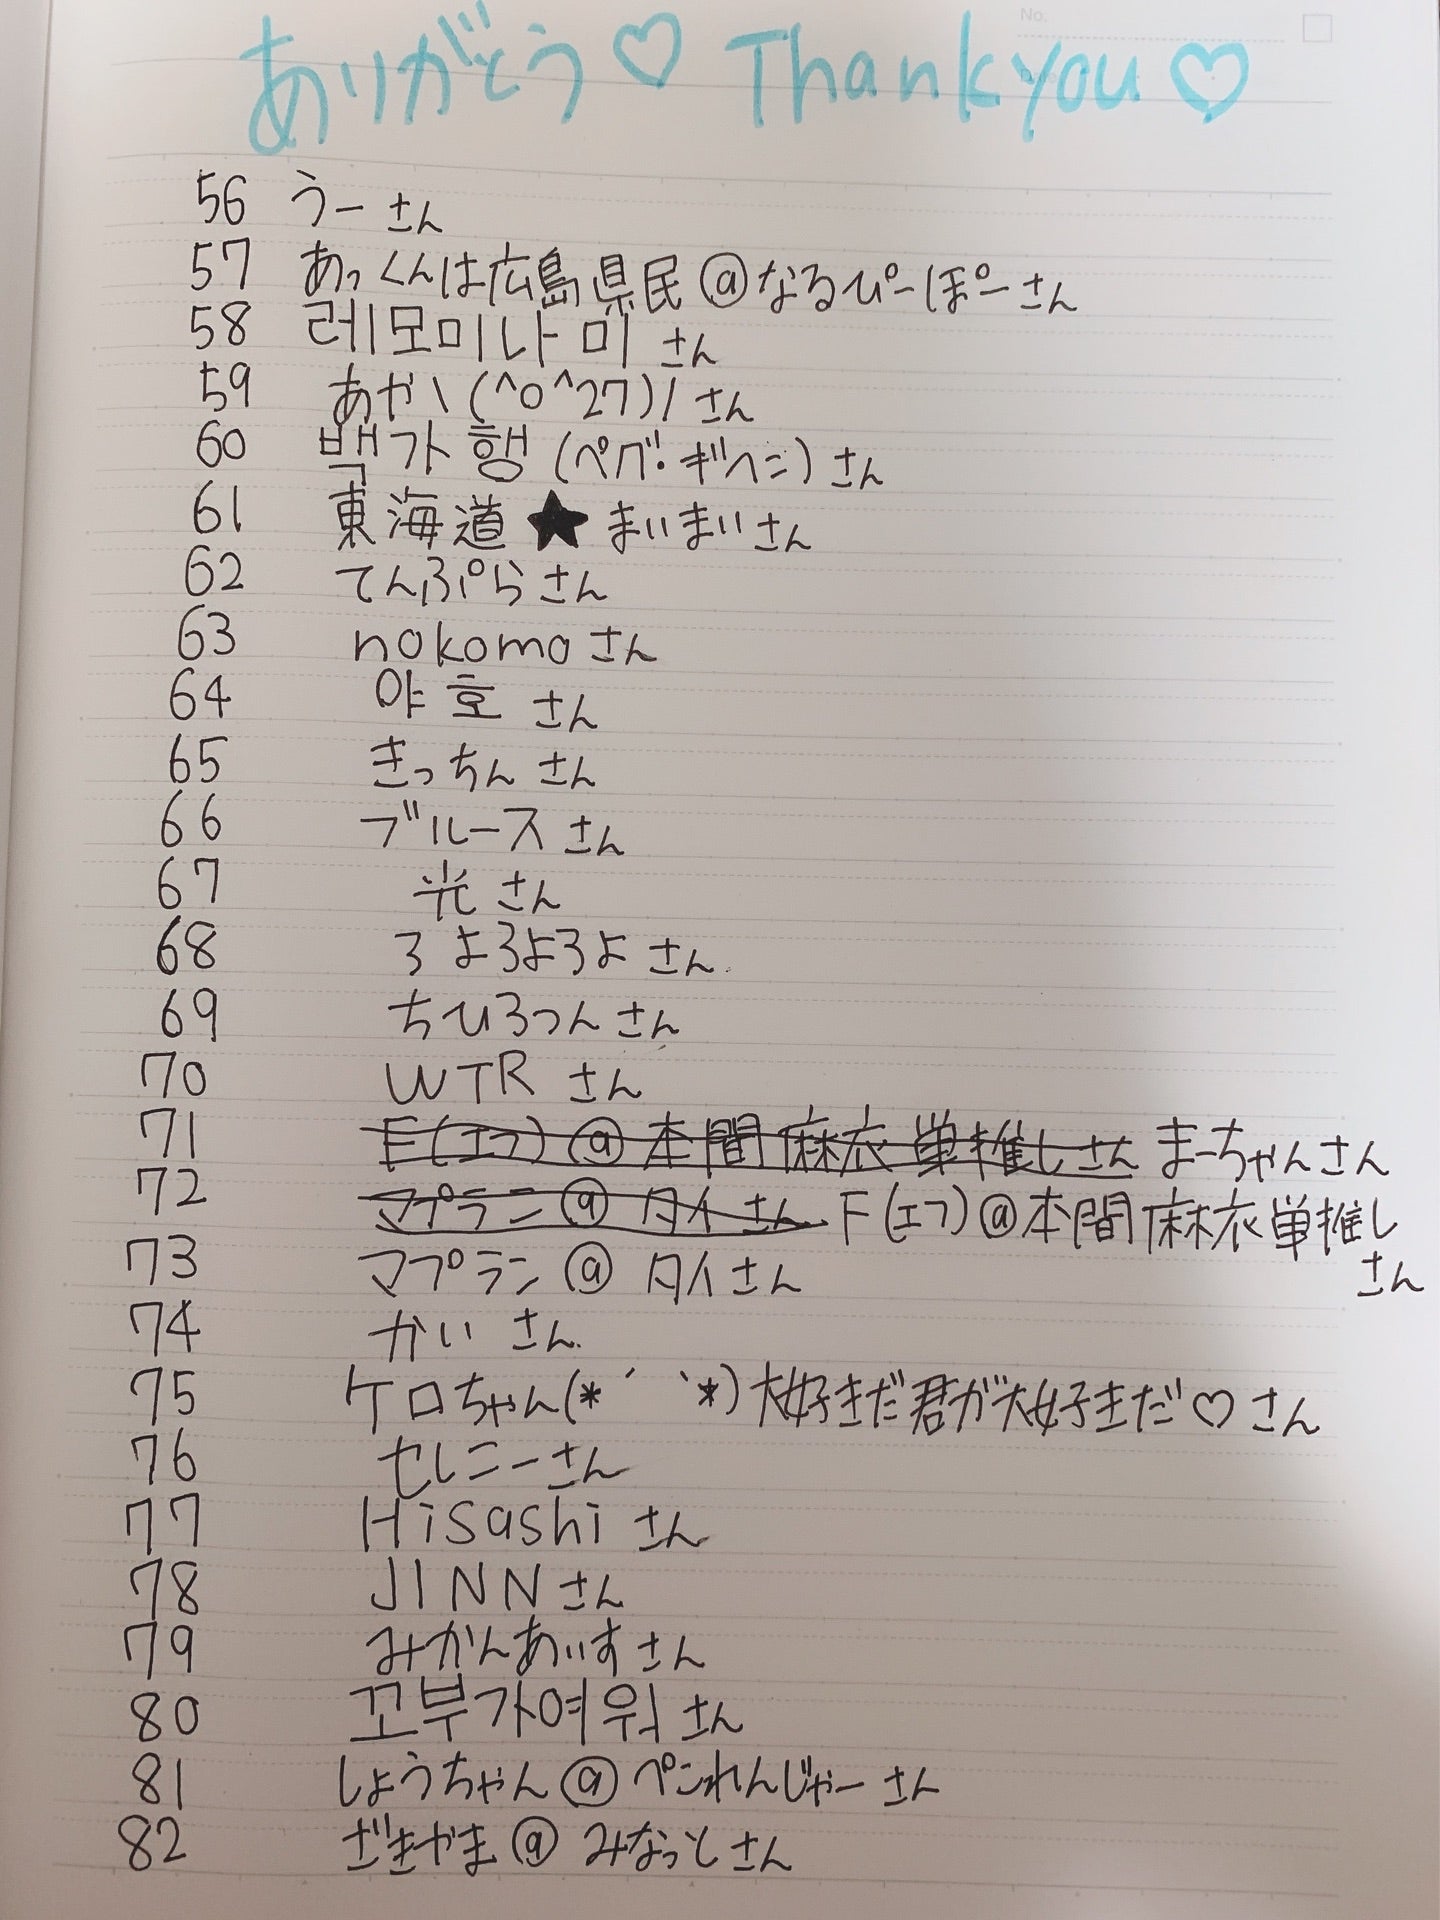 ありがとう♡ Thank you♡
No.
56 うーさん
57 あっくんは広島県民@なるぴーぽーさん
58 레모미나미さん
59 あや\(^o^27)/さん
60 백가행(ペグ・ギヘン)さん
61 東海道★まいまいさん
62 てんぷらさん
63 nokomoさん
64 야호さん
65 きっちんさん
66 ブルースさん
67 光さん
68 ろよろよろよさん
69 ちひろつんさん
70 WTRさん
71 F(エフ)@本間麻衣単推しさん まーちゃんさん
72 マプラン@タイさん F(エフ)@本間麻衣単推し
さん
73 マプラン@タイさん
74 かいさん
75 ケロちゃん(*´ `*)大好きだ君が大好きだ♡さん
76 セレニーさん
77 Hisashiさん
78 JINNさん
79 みかんあいすさん
80 꼬부가여워さん
81 しょうちゃん@ペンれんじゃーさん
82 ざきやま@みなっとさん